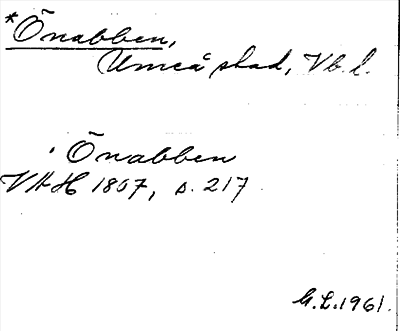 *Önabben,
Umeå stad, Vb. l.
Önabben
VAH 1807, s. 217
G.L. 1961.